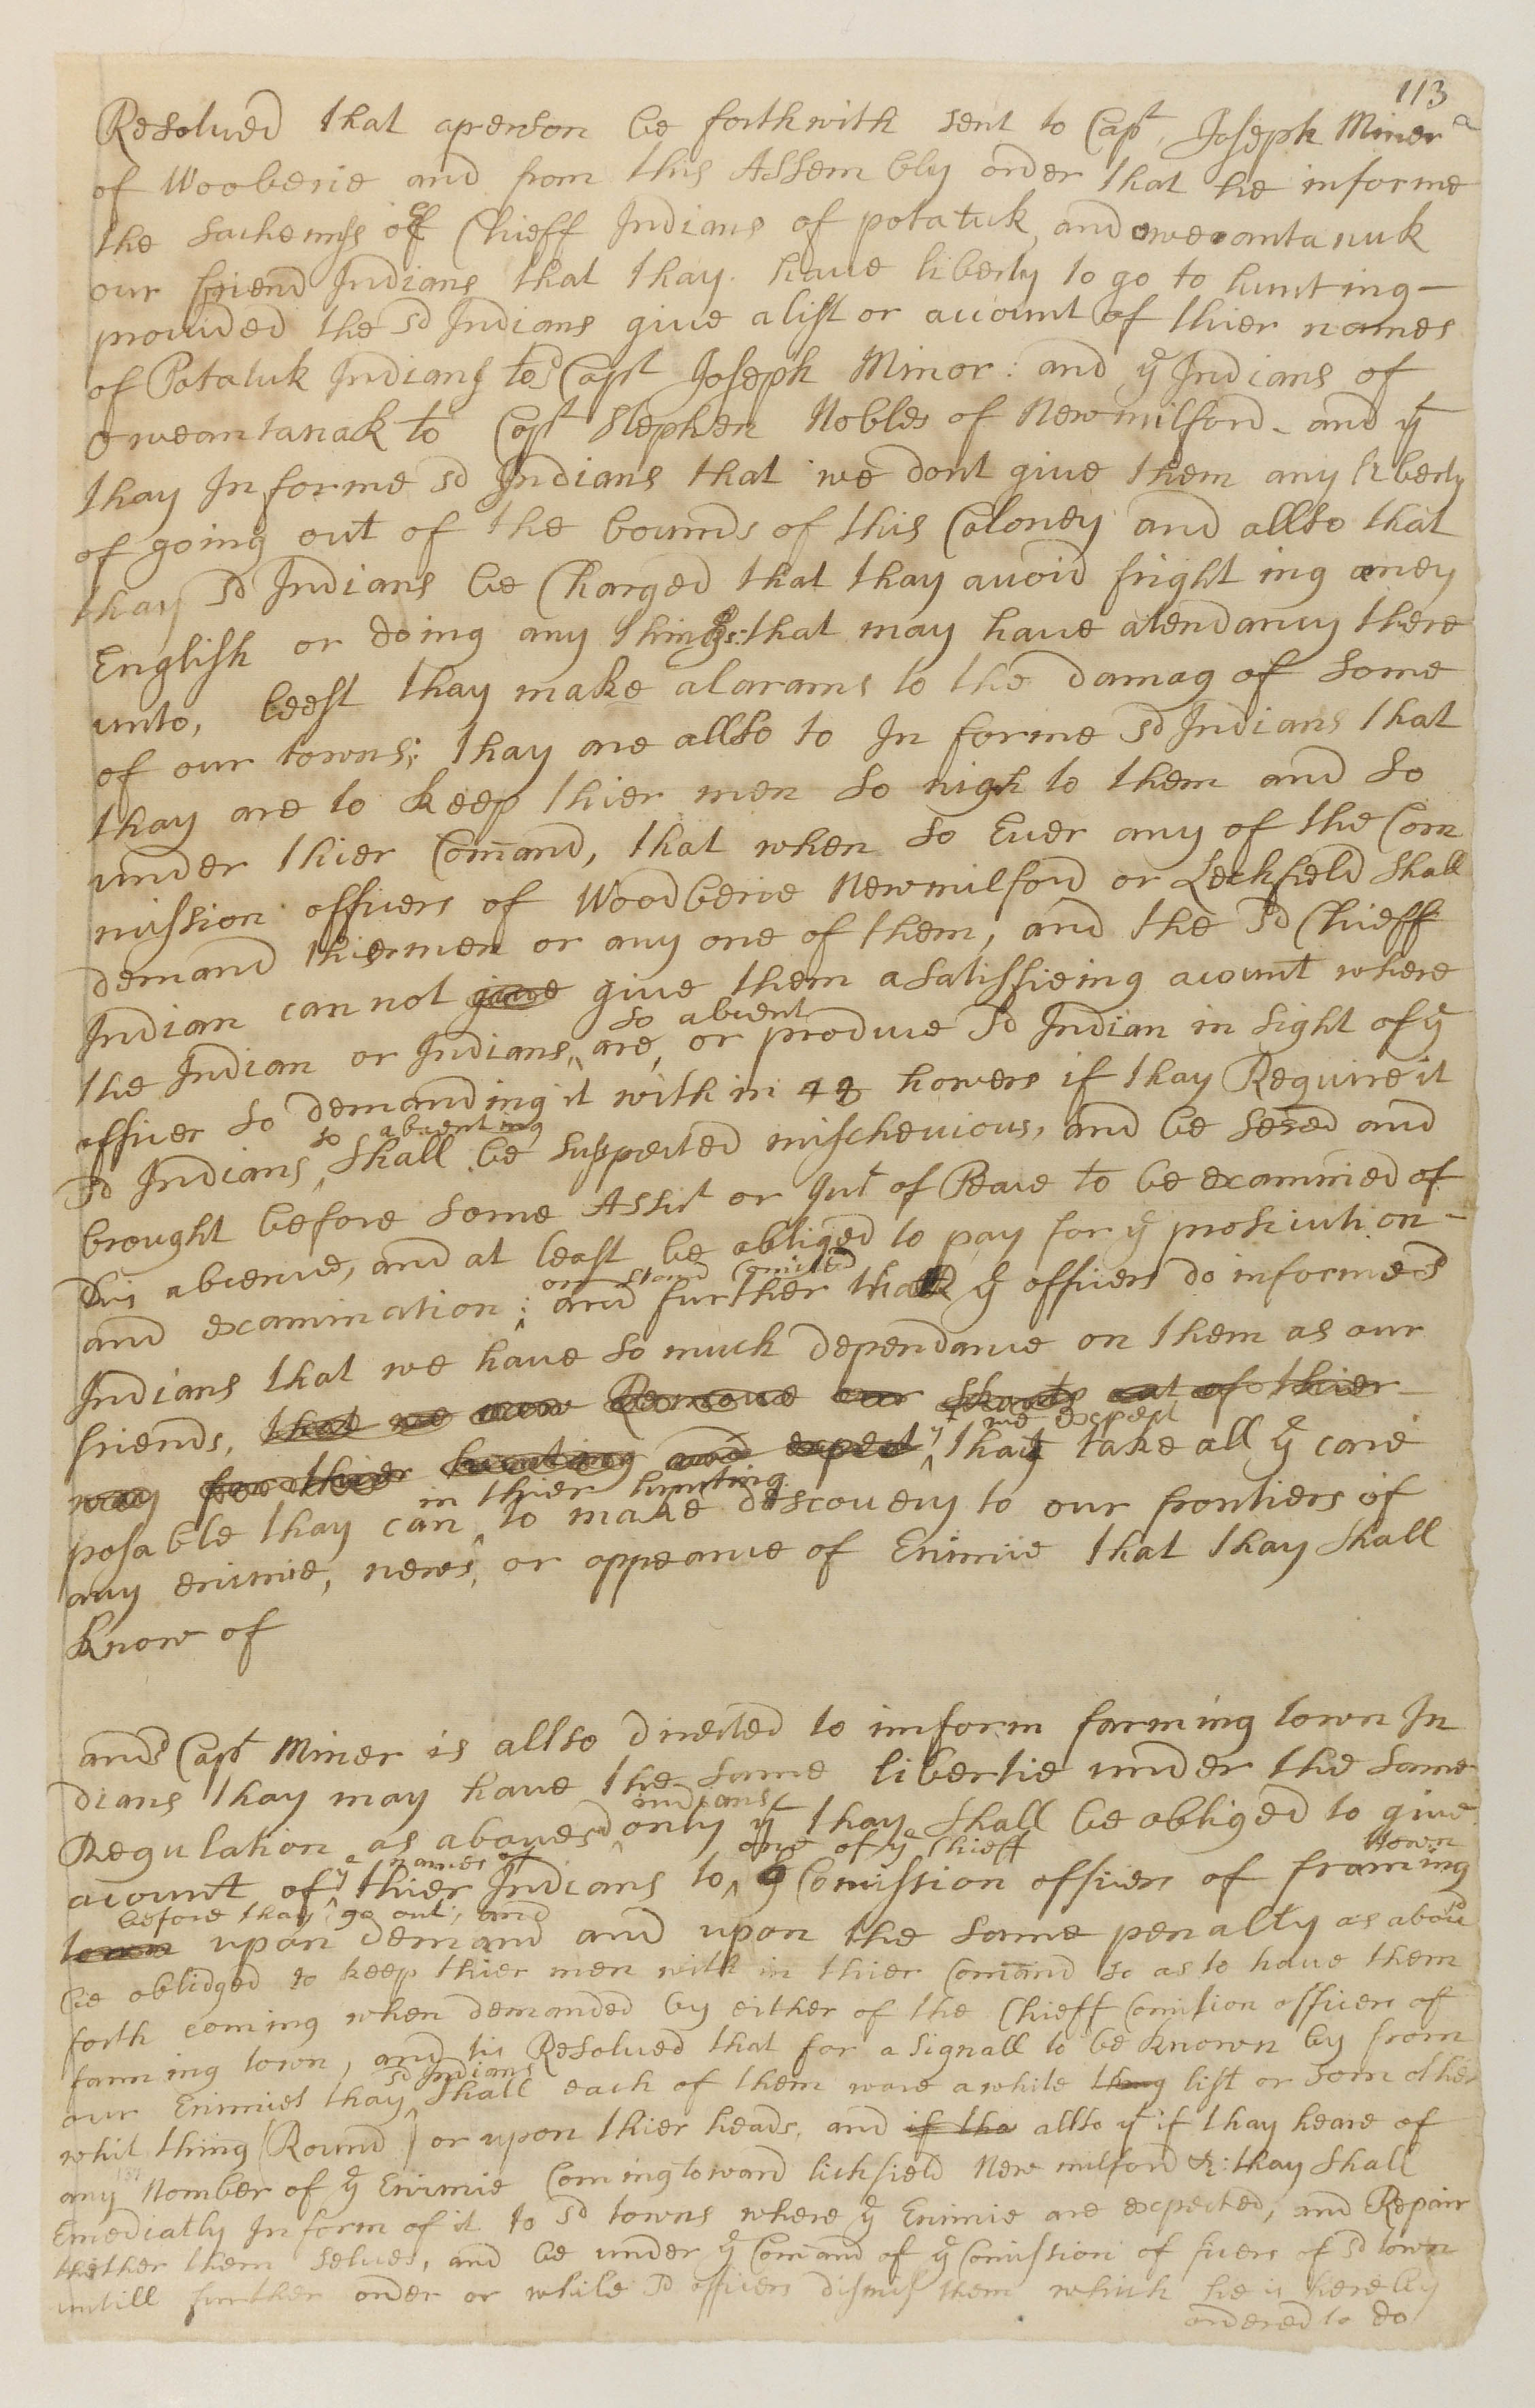 113
a
Resolued that aperson be forthwith sent to Capt, Joseph Miner
of Wooberie and from this Assembly order that he informe
the Sachemss of Chieff Indians of potatuk, and oweantanuk
our friend Indians that thay have liberty to go to hunting -
prouided the sd Indians giue a list or acount of thier names
of Potatuk Indians to sd Capt Joseph Minor: and ye Indians of
oweantanak to Capt Stephen Nobles of Newmilford - and yt
thay Informe sd Indians that we dont giue them any liberty
of going out of the bounds of this Coloney and allso that
thay sd Indians be Charged that thay auoid frighting aney
English or doing any things: that may have atendancy there
unto, leest thay make alarams to the damag of some
of our towns; thay are allso to In forme sd Indians that
thay are to keep thier men so nigh to them and so
under thier Comand, that when so Euer any of the Com
mission officers of Woodberie Newmilford or Lechfield shall
demand thiermen or any one of them, and the sd Chieff
Indian cannot giue giue them a satisfieing acount where
so abcent
the Indian or Indians, are, or produce sd Indian in sight of ye
officer so demanding it with in 48 howers if thay Require it
so abcenting
sd Indians, shall be suspected mischeuious, and be sesed and
brought before some Assist or Just of Peace to be examined of
his abcence, and at least be obliged to pay for ye prosicution -
or stand Comited
and examination; and further that ye officers do informe sd
Indians that we haue so much dependance on them as our
friends, that we now Remoue our Skouts out of thier
yt we expect
way for thier hunting and expect thay take all ye care
in thier hunting
posable thay can, to make discouery to our frontiers of
any enimie, news, or appearance of Enimie that thay shall
know of
and sd Capt Miner is allso directed to inform farming town In
dians thay may haue the same libertie under the same
indians
Regulation as abouesd only yt thay shall be obliged to giue
ye names of one of ye Chieff town
acount of thier Indians to ye Comission officers of framing
before thay go out, and
town upon demand and upon the same penalty as abousd
be oblidged to keep thier men with in thier Comand so as to haue them
forth coming when demanded by either of the Chieff Comition officers of
farming town, and tis Resolued that for a signall to be known by from
sd Indians
our Enimies thay shall each of them ware a white thing list or som other
whit thing (Round) or upon thier heads, and if tha allso yt if thay heare of
any Nomber of ye Enimie Coming toward lichfield New milford &c: thay shall
Emediatly Inform of it to sd towns where ye Enimie are expected, and Repair
thether them selues, and be under ye Comand of ye Comission officers of sd town
untill further order or while sd officers dismiss them which he is hereby
ordered to do